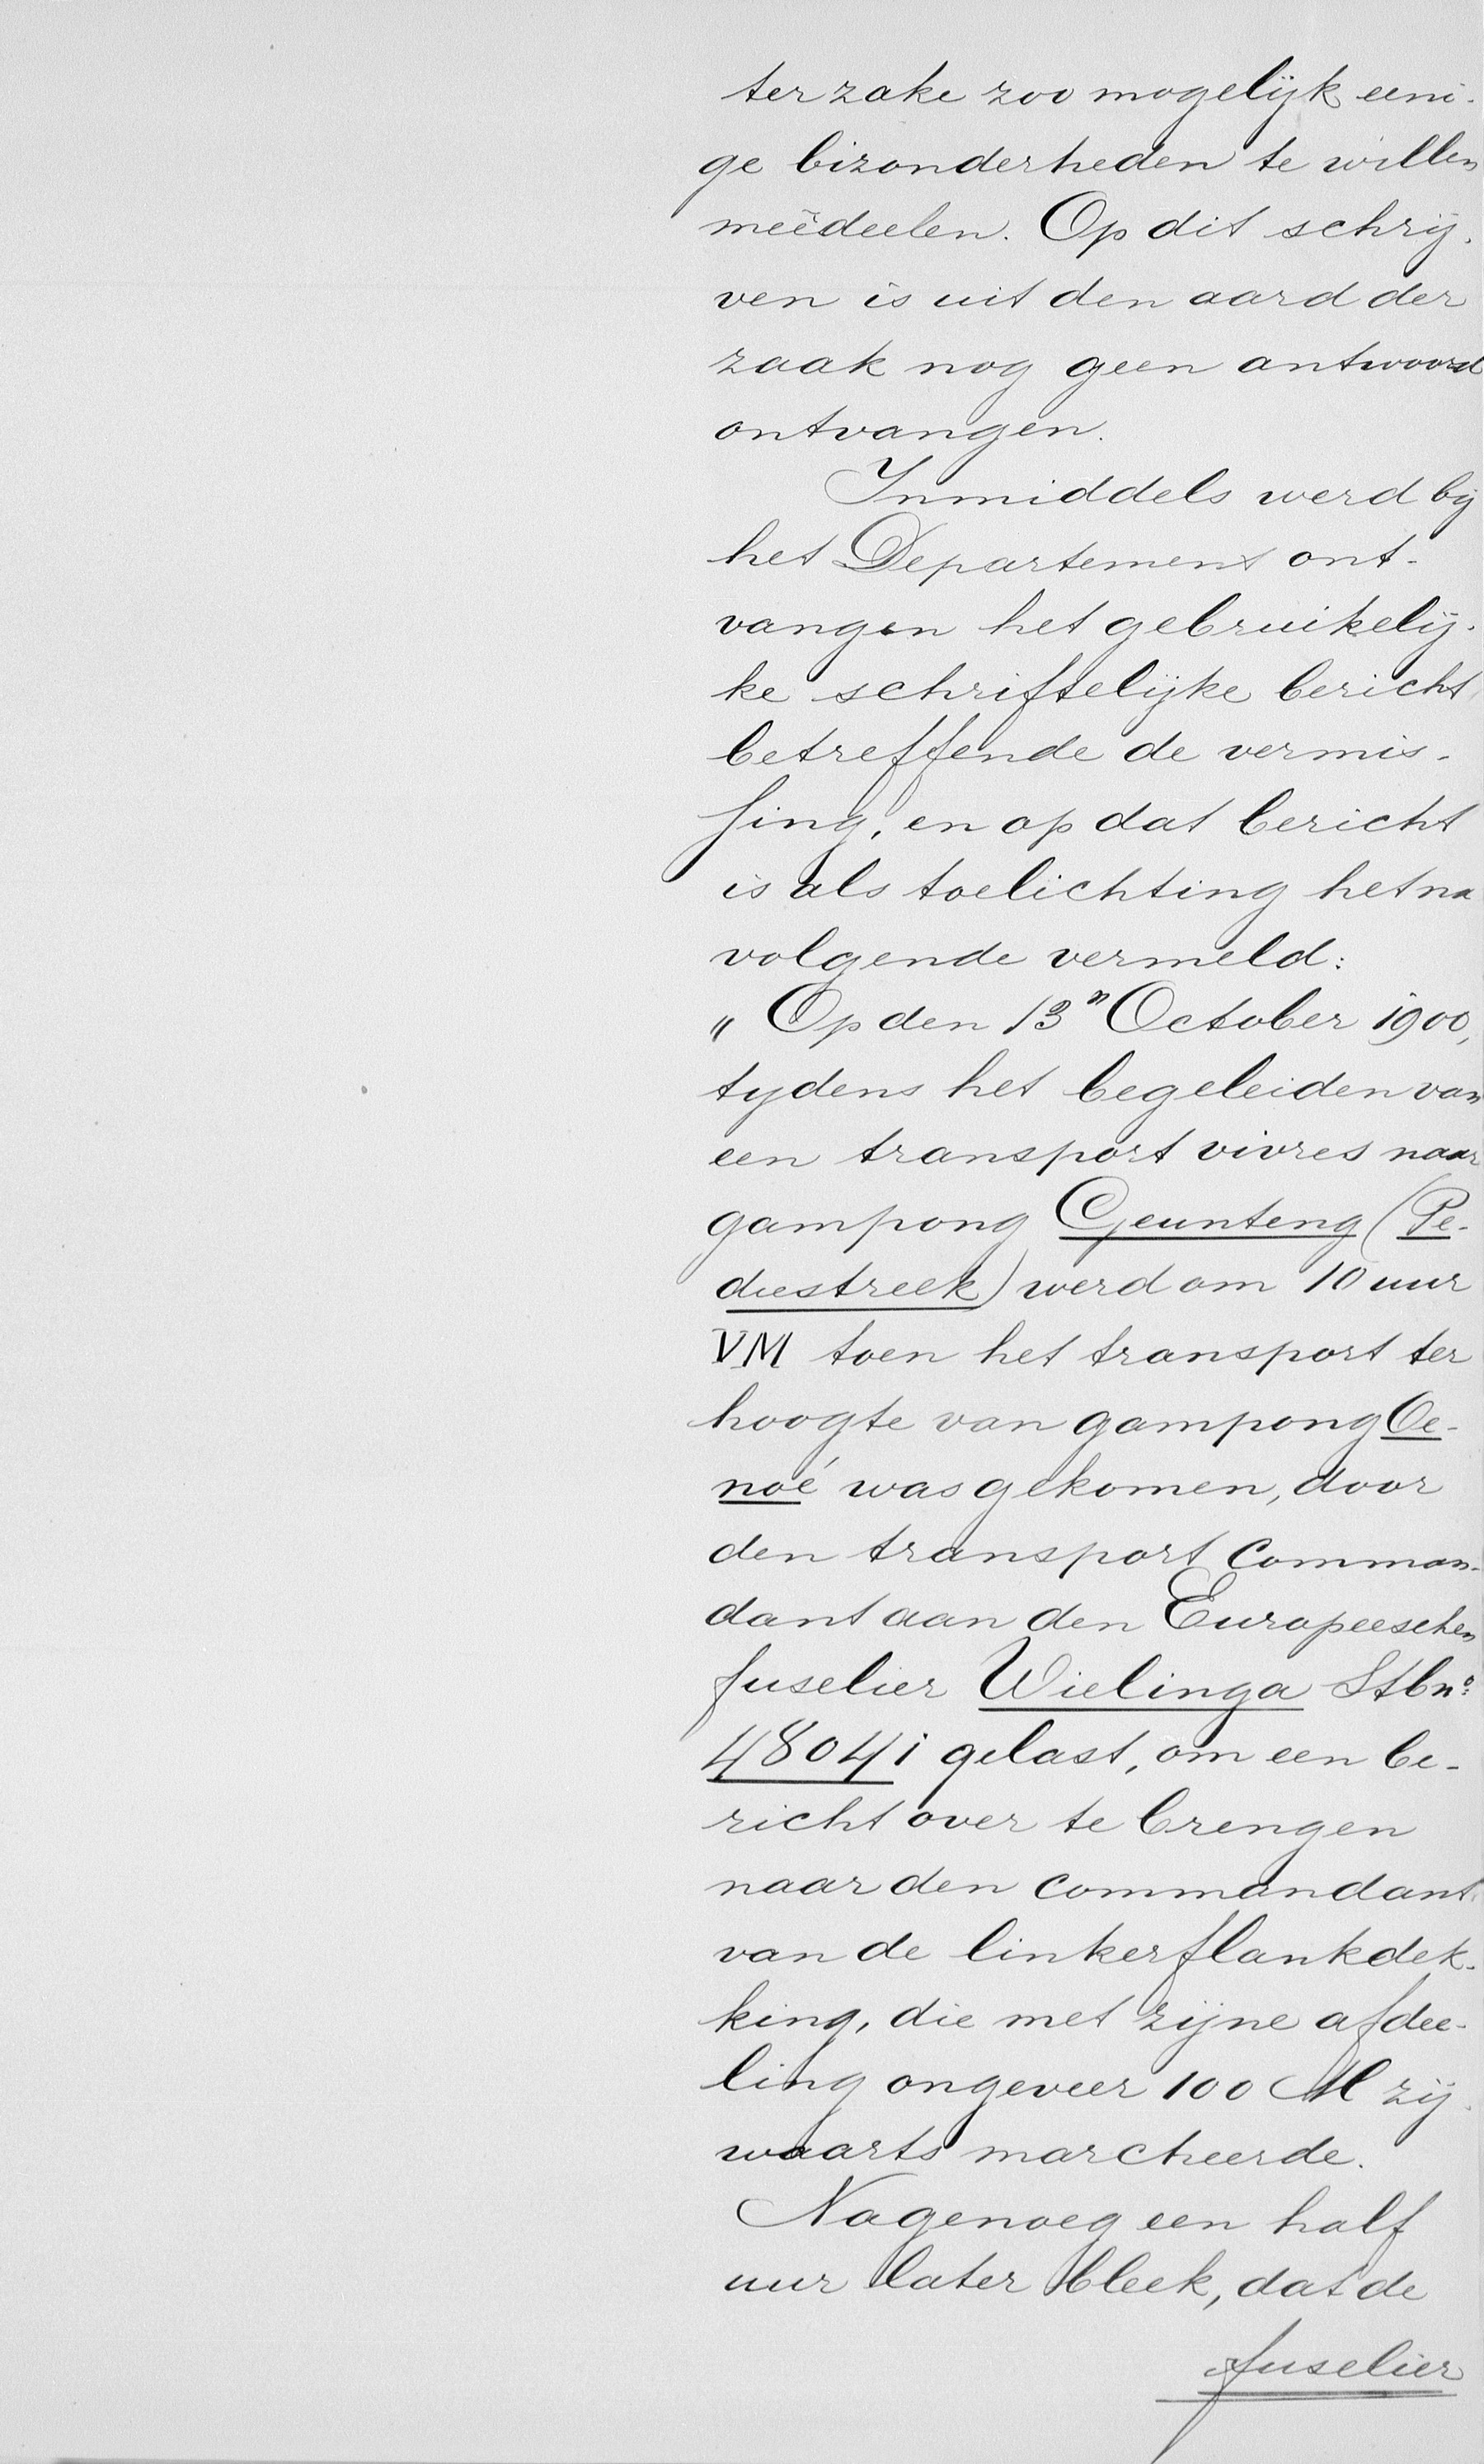 ter zake zoo mogelijk eeni-
ge bizonderheden te willen
meêdeelen. Op dit schrij-
ven is uit den aard der
zaak nog geen antwoord
ontvangen.
Inmiddels werd bij
het Departement ont-
vangen het gebruikelij-
ke schriftelijke bericht
betreffende de vermis-
sing, en op dat bericht
is als toelichting het na
volgende vermeld:
„Op den 13n October 1900,
tydens het begeleiden van
een transport vivres naar
gampong Geunteng (Pe-
diestreek) werd om 10 uur
VM toen het transport ter
hoogte van gampong Oe-
noé was gekomen, door
den transport comman-
dant aan den Europeeschen
fuselier Wielinga Stbno:
48041 gelast, om een be-
richt over te brengen
naar den commandant
van de linkerflankdek-
king, die met zijne afdee-
ling ongeveer 100 M zij-
waarts marcheerde.
Nagenoeg een half
uur later bleek, dat de
fuselier